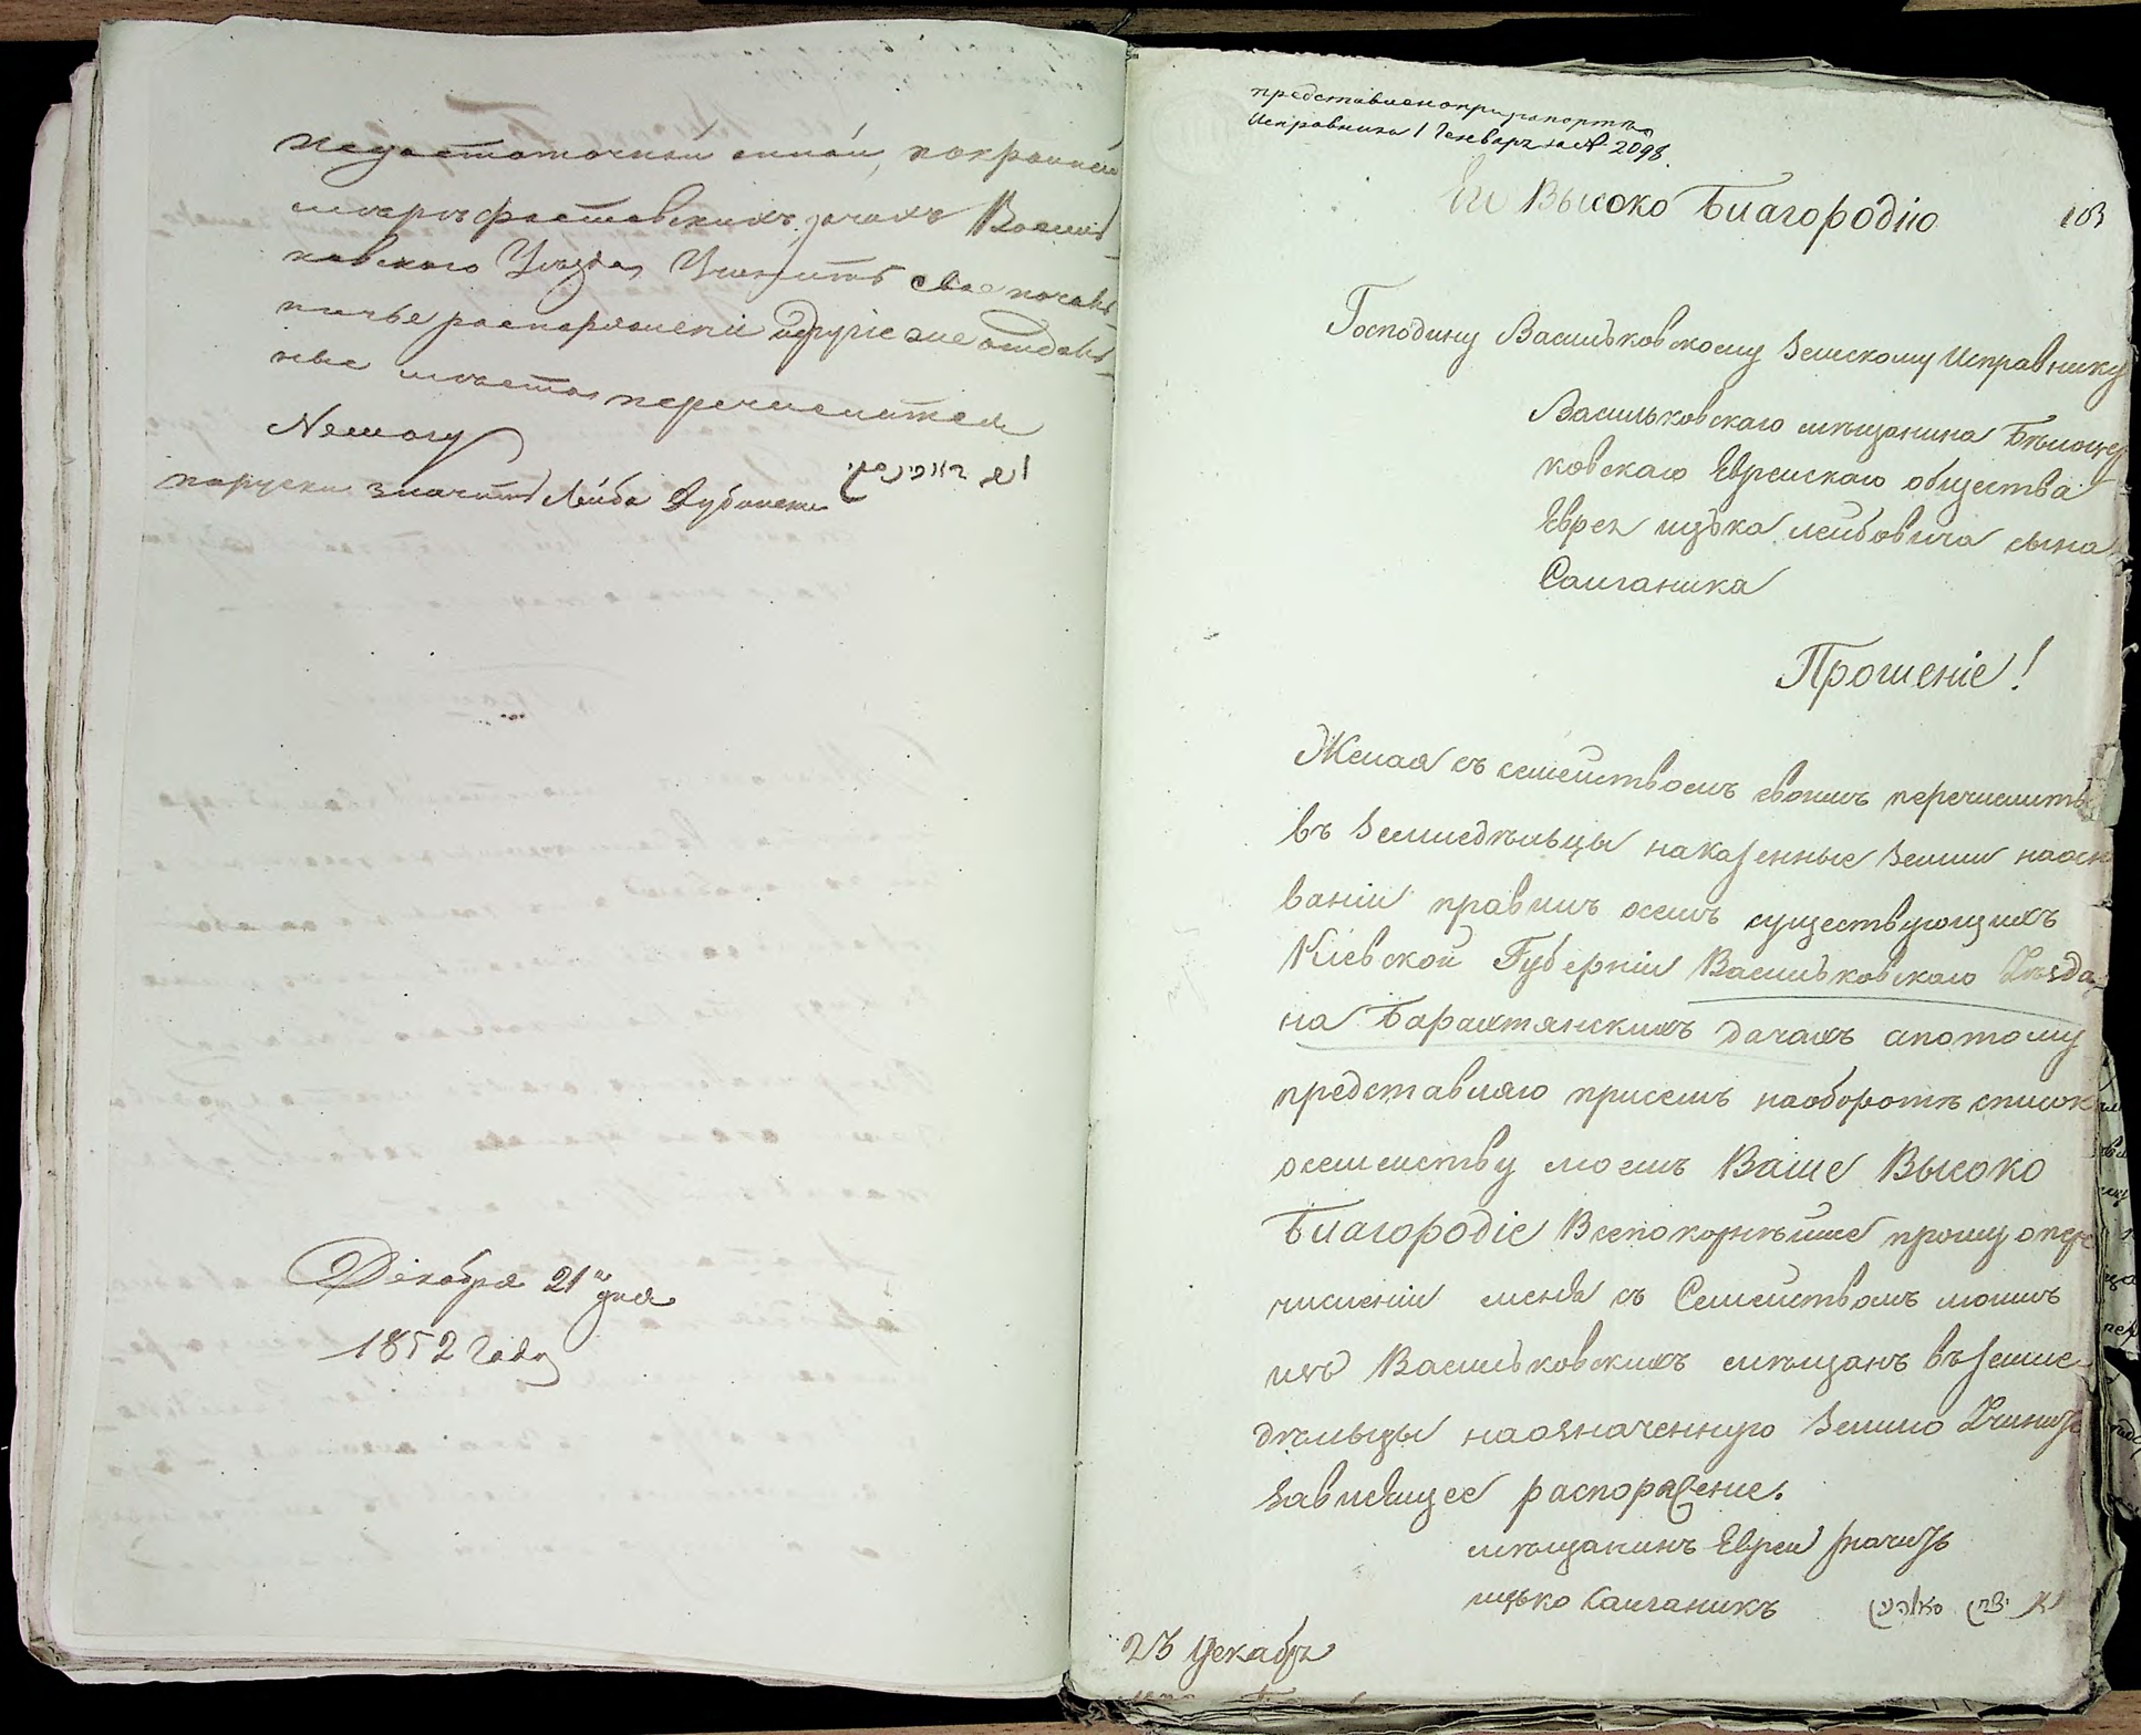 недостаточной
мѣрѣ фастовскихъ дачахъ Василь-
ковского Уезда Учинить свое началь-
ничье распоряжение другіе же отдален-
ные места перечислится
Немогу
поруски значитъ Лейба Дубински
Декабря 21 дня
1852 Году
представлено при рапортѣ
Исправника 1 Генваря за № 2098.
Его Высоко Благородію
103
Господину Васильковскому Земскому Исправнику
Васильковскаго мѣщанина Бѣлоцер
ковскаго Еврейскаго общества
Еврея ицька лейбовича сына
Салганика
Прошеніе!
Желая съ семействомъ своимъ перечислить
въ Земледѣльцы на казенные Земли на осн
ваніи правилъ осемъ существующихъ
Кіевской Губерніи Васильковскаго Уезда
на Барахтянскихъ дачахъ а потому
представляю присемъ наоборотѣ список
осемейству моемъ Ваше Высоко
Благородіе Всепокорнѣйше прошу опере
численіи меня съ Семействомъ моимъ
изъ Васильковскихъ мѣщанъ въ земле
дѣльцы наозначенную Землю Учинить
Зависящее распоряжение.
мѣщанинъ Еврей значить
ицько Салганикъ
23 Декабр